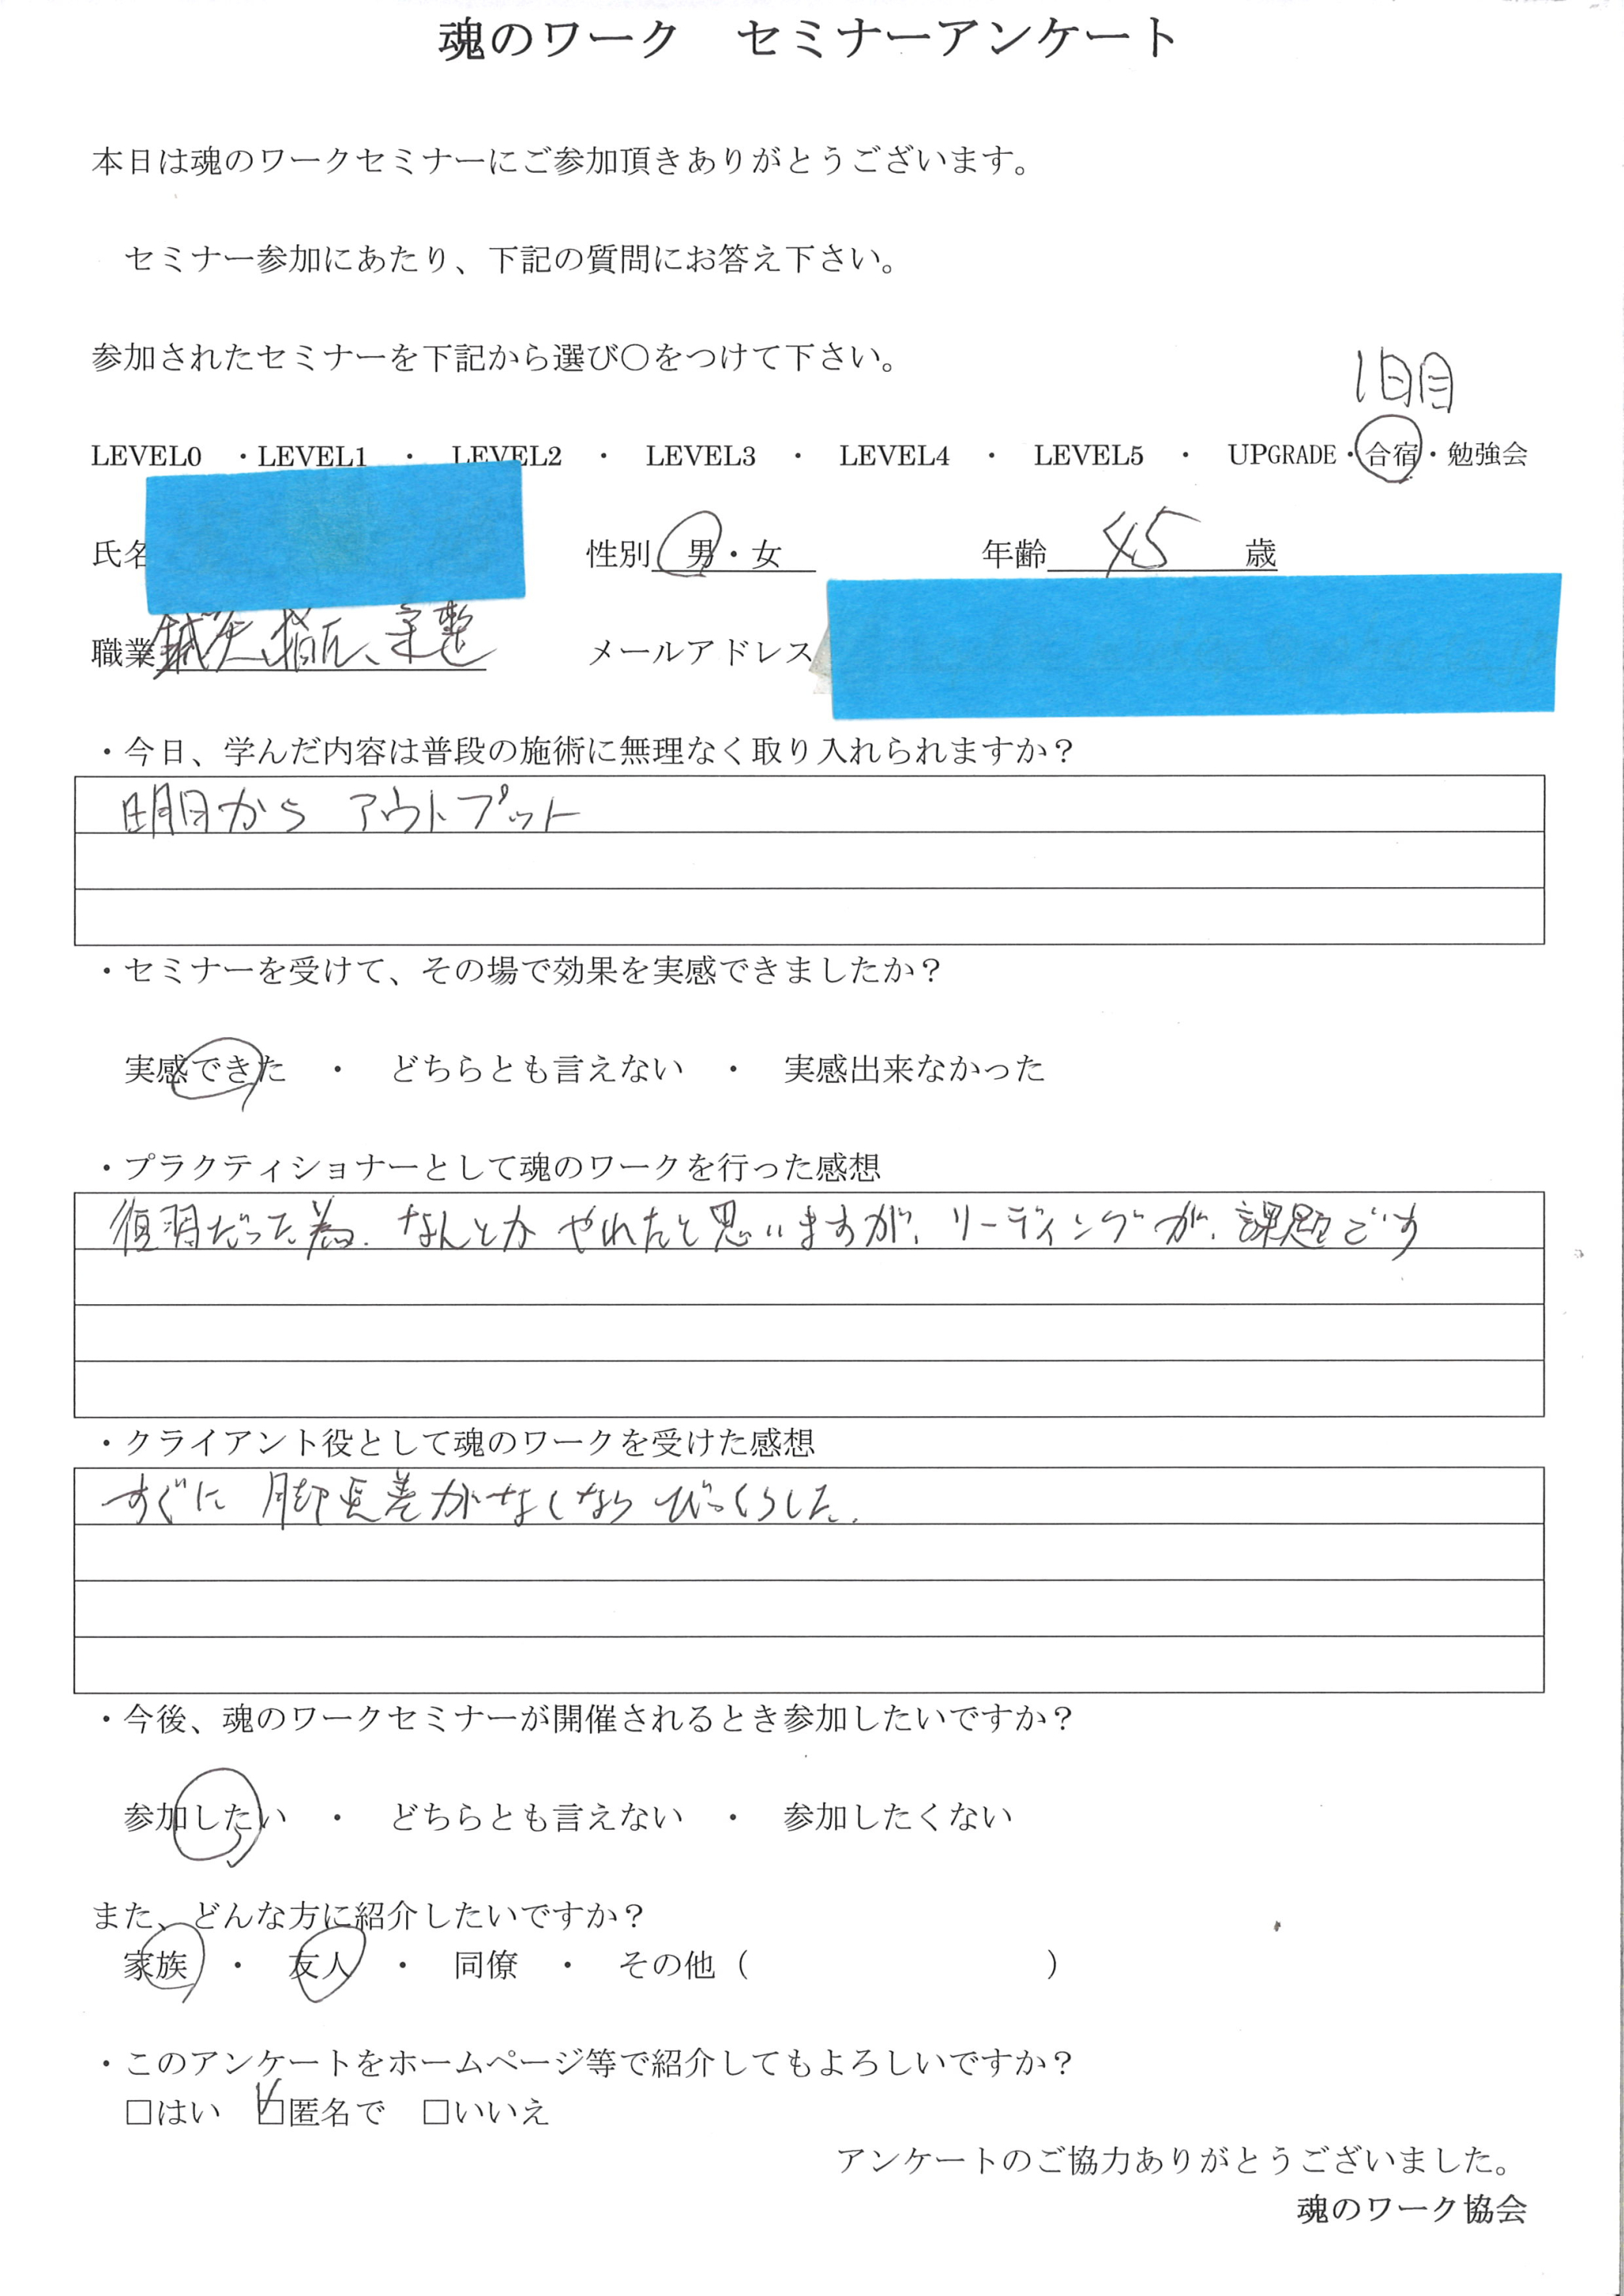 魂のワーク　セミナーアンケート
本日は魂のワークセミナーにご参加頂きありがとうございます。
セミナー参加にあたり、下記の質問にお答え下さい。
参加されたセミナーを下記から選び〇をつけて下さい。
1日目
LEVEL0　・LEVEL1　・　LEVEL2　・　LEVEL3　・　LEVEL4　・　LEVEL5　・　UPGRADE・合宿・勉強会
氏名　性別 男・女　年齢 45 歳
職業 鍼灸、指圧、柔整　メールアドレス
・今日、学んだ内容は普段の施術に無理なく取り入れられますか？
明日から アウトプット
・セミナーを受けて、その場で効果を実感できましたか？
実感できた　・　どちらとも言えない　・　実感出来なかった
・プラクティショナーとして魂のワークを行った感想
復習だった為、なんとか やれたと思いますが、リーディングが、課題です
・クライアント役として魂のワークを受けた感想
すぐに 脚長差がなくなり びっくりした。
・今後、魂のワークセミナーが開催されるとき参加したいですか？
参加したい　・　どちらとも言えない　・　参加したくない
また、どんな方に紹介したいですか？
家族　・　友人　・　同僚　・　その他（　　　　　　　　　）
・このアンケートをホームページ等で紹介してもよろしいですか？
□はい　☑匿名で　□いいえ
アンケートのご協力ありがとうございました。
魂のワーク協会